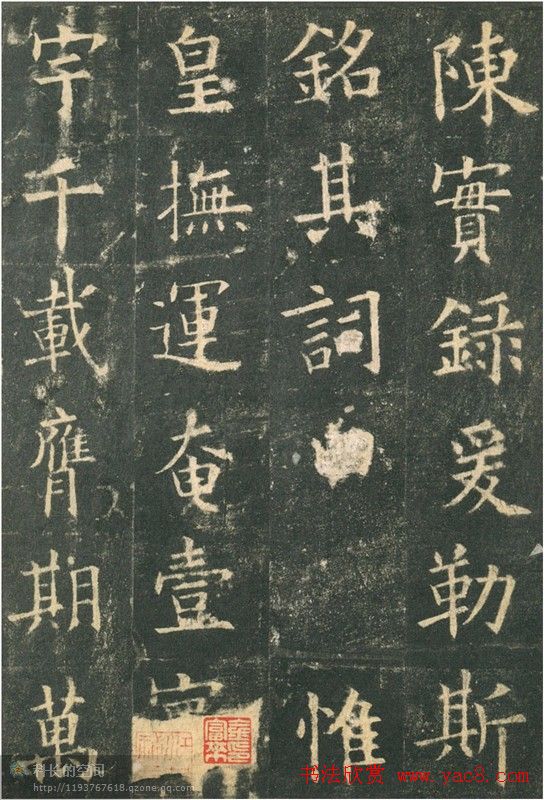 陳實録爰勒斯
銘其詞惟
皇撫運奄壹
宇千載膺期萬
科长的空间
http://1193767618.qzone.qq.com
书法欣赏 www.yac8.com